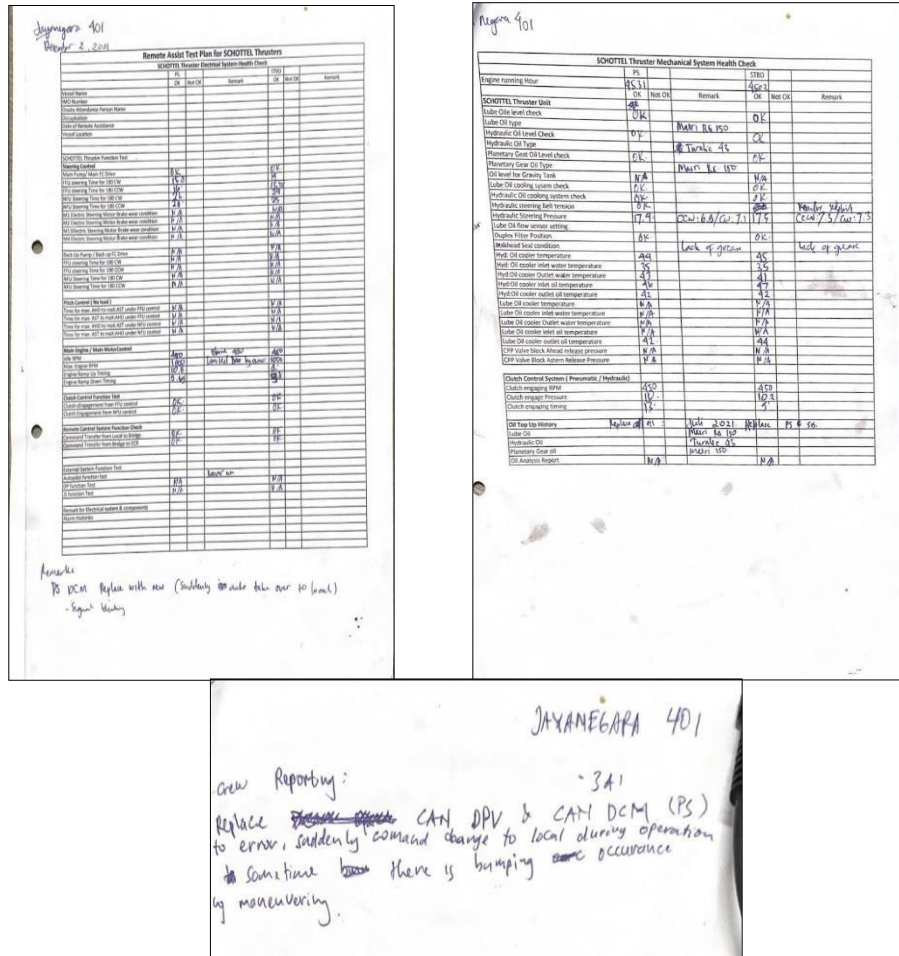 Jayanegara 401
December 2, 2021
Remote Assist Test Plan for SCHOTTEL Thrusters
SCHOTTEL Thruster Electrical System Health Check
PS STBD
OK Not OK Remark OK Not OK Remark
Vessel Name
IMO Number
Onsite Attendance Person Name
Occupation
Date of Remote Assistance
Vessel Location
SCHOTTEL Thruster Function Test
Steering Control
Main Pump/ Main FC Drive OK OK
FFU steering Time for 180 CW
FFU steering Time for 180 CCW
NFU Steering Time for 180 CW
NFU Steering Time for 180 CCW
M1 Electric Steering Motor Brake wear condition N/A N/A
M2 Electric Steering Motor Brake wear condition N/A N/A
M3 Electric Steering Motor Brake wear condition N/A N/A
M4 Electric Steering Motor Brake wear condition N/A N/A
Back Up Pump / Back up FC Drive N/A N/A
FFU steering Time for 180 CW N/A N/A
FFU steering Time for 180 CCW N/A N/A
NFU Steering Time for 180 CW N/A N/A
NFU Steering Time for 180 CCW N/A N/A
Pitch Control ( No load )
Time for max. AHD to max. AST under FFU control N/A N/A
Time for max. AST to max. AHD under FFU control N/A N/A
Time for max. AHD to max. AST under NFU control N/A N/A
Time for max. AST to max. AHD under NFU control N/A N/A
Main Engine / Main Motor Control
Idle RPM
Max. Engine RPM
Engine Ramp Up Timing
Engine Ramp Down Timing
Clutch Control Function Test OK
Clutch Engagement from FFU control OK OK
Clutch Engagement from NFU control OK OK
Remote Control System Function Check
Command Transfer from Local to Bridge OK OK
Command Transfer from Bridge to ECR OK OK
External System Function Test
Autopilot function test
DP function Test N/A N/A
JS function Test N/A N/A
Remark for Electrical system & components
Alarm Histories
Remarks
PS DCM Replace with new (Suddenly auto take over to local)
- Signal
negara 401
SCHOTTEL Thruster Mechanical System Health Check
PS STBD
Engine running Hour 4531 4502
OK Not OK Remark OK Not OK Remark
SCHOTTEL Thruster Unit
Lube Oil level check OK OK
Lube Oil type 150
Hydraulic Oil Level Check OK OK
Hydraulic Oil Type 43
Planetary Gear Oil Level check OK OK
Planetary Gear Oil Type 150
Oil level for Gravity Tank N/A N/A
Lube Oil cooling system check OK OK
Hydraulic Oil cooling system check OK OK
Hydraulic steering belt tension OK
Hydraulic Steering Pressure 17.9 CCW: 6.8/CW: 7.1 17.5 CCW: 7.3/CW: 7.3
Lube Oil flow sensor setting
Duplex Filter Position OK OK
Bulkhead Seal condition Lack of grease Lack of grease
Hyd: Oil cooler temperature 44 45
Hyd:Oil cooler inlet water temperature 35 35
Hyd:Oil cooler Outlet water temperature 43 41
Hyd:Oil cooler inlet oil temperature 46 47
Hyd:Oil cooler outlet oil temperature 42 42
Lube Oil cooler temperature N/A N/A
Lube Oil cooler inlet water temperature N/A N/A
Lube Oil cooler Outlet water temperature N/A N/A
Lube Oil cooler inlet oil temperature N/A N/A
Lube Oil cooler outlet oil temperature 42 44
CPP Valve block Ahead release pressure N/A N/A
CPP Valve Block Astern Release Pressure N/A N/A
Clutch Control System ( Pneumatic / Hydraulic)
Clutch engaging RPM 450 450
Clutch engage Pressure 10.2
Clutch engaging timing
Oil Top Up History Replace oil: Juli 2021 Replace PS & SB.
Lube Oil 150
Hydraulic Oil 43
Planetary Gear oil 150
Oil Analysis Report N/A N/A
JAYANEGARA 401
crew Reporting: - 3A1
Replace CAN DPV & CAN DCM (PS)
to error, suddenly comand change to local during operation
sometime there is bumping occurance
ng maneuvering.